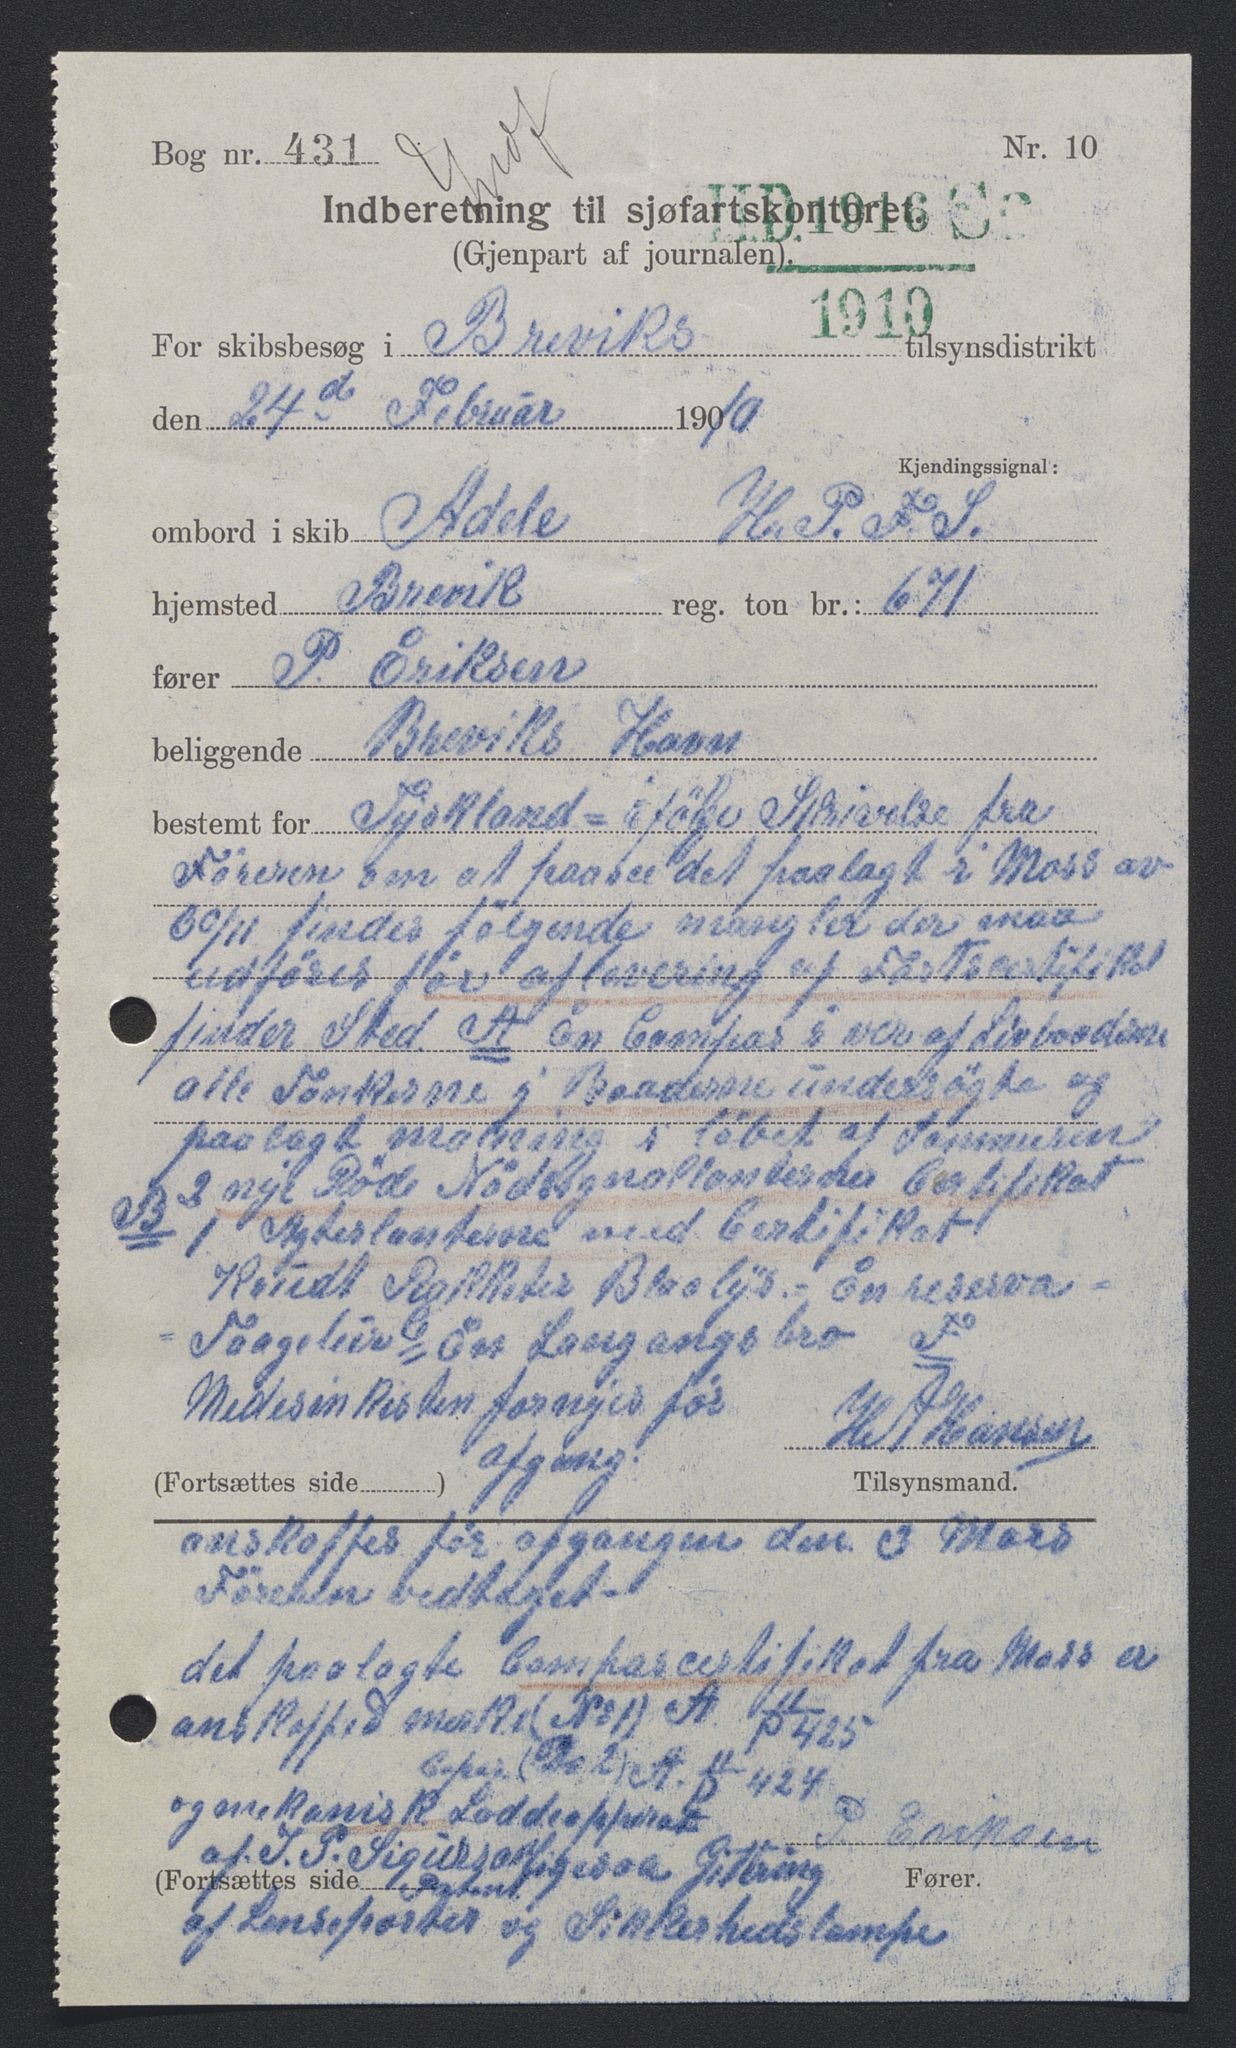 Bog nr. 431
Nr. 10
H.D. 1916 Sc
1910
Indberetning til sjøfartskontoret.
(Gjenpart af journalen).
For skibsbesøg i Breviks tilsynsdistrikt
den 24d Februar 1910
Kjendingssignal:
ombord i skib Adele H. P. F. S.
hjemsted Brevik reg. ton br.: 671
fører P. Eriksen
beliggende Breviks Havn
bestemt for Tyskland = ifölge Skrivelse fra
Föreren om at paasee det paalagt i Moss av
30/11 findes fölgende mangler der maa
udföres för aflevering af Fartscertifikat
finder Sted. A En Compas i ver af Livbaadene
alle Tankerne i Baaderne undersögte og
paalagt maling i löbet af Sommeren
B 2 nye Röde Nödsignallanterner Certifikat
1 Agterlanterne med Certifikat
Raketter Blaalys. - En reserva =
= Taagelur C = En Langangsbro F
Medesinkisten fornyes för
afgang.
H. A Hansen
(Fortsættes side ) Tilsynsmand.
anskaffes för afgangen den 3 Mars
Föreren vedtaget -
det paalagte Compascertifikat fra Moss er
anskaffed merke (No 1) A 425
(Do 2) A. 424
og mekanisk Loddeapparat
P Eriksen
af J. P. Sigurson ligesaa Gittring
Patent
(Fortsættes side Fører.
af Lenseporter og Sikkerhedslampe